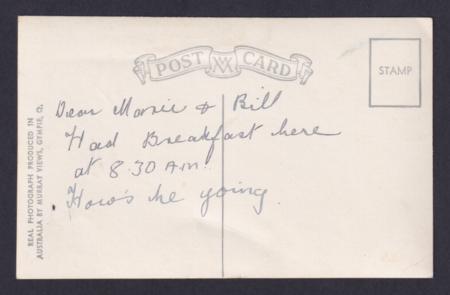 POST CARD
STAMP
Dear Marie & Bill
Had Breakfast here
at 8.30 Am.
How's he going.
REAL PHOTOGRAPH PRODUCED IN
AUSTRALIA BY MURRAY VIEWS, GYMPIE, Q.